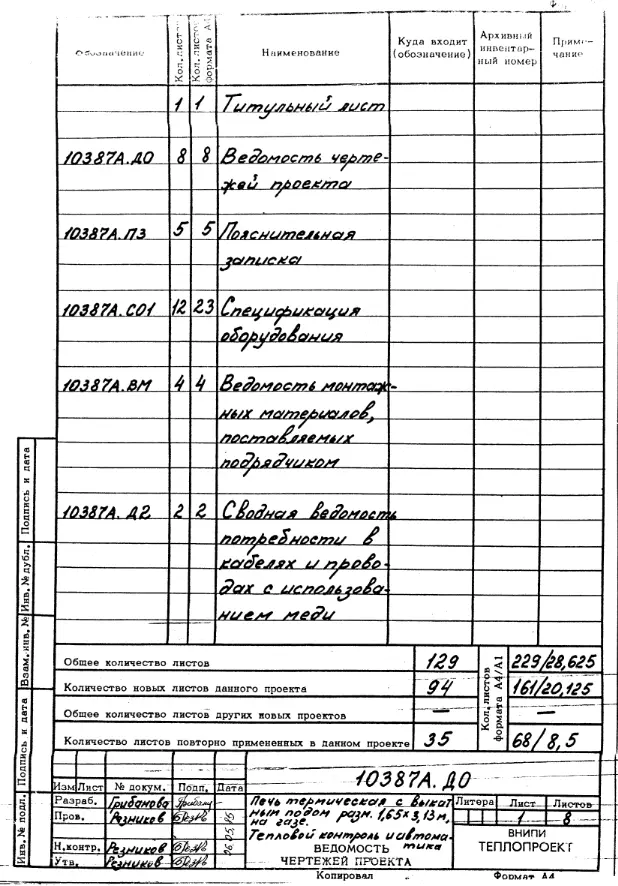 Обозначение
Кол. листов
Кол. листов формата А4
Наименование
Куда входит (обозначение)
Архивный инвентарный номер
Примечание
1 1 Титульный лист
10387А.ДО 8 8 Ведомость черте-
жей проекта
10387А.ПЗ 5 5 Пояснительная
записка
10387А.СО1 12 23 Спецификация
оборудования
10387А.ВМ 4 4 Ведомость монтаж-
ных материалов,
поставляемых
подрядчиком
10387А.Д2 2 2 Сводная ведомость
потребности в
кабелях и прово-
дах с использова-
нием меди
Общее количество листов 129
Количество новых листов данного проекта 94
Общее количество листов других новых проектов —
Количество листов повторно примененных в данном проекте 35
Кол. листов формата А4/А1
229/28,625
161/20,125
—
68/8,5
Инв. № подл.
Подпись и дата
Взам. инв. №
Инв. № дубл.
Подпись и дата
10387А.ДО
Изм Лист № докум. Подп. Дата
Разраб. Грибанова
Пров. Резников
Н.контр. Резников
Утв. Резников
Печь термическая с выкат
ным подом разм. 1,65х3,13м,
на газе.
Тепловой контроль и автома-
тика
ВЕДОМОСТЬ
ЧЕРТЕЖЕЙ ПРОЕКТА
Литера Лист Листов
1 8
ВНИПИ
ТЕПЛОПРОЕКТ
Копировал Формат А4